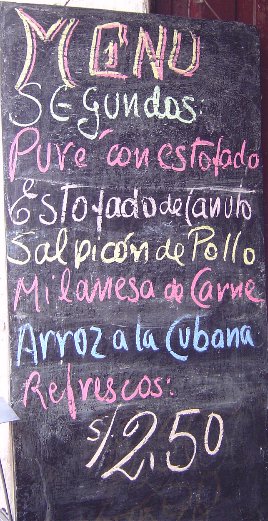 MENU
Segundos:
Puré con estofado
Estofado de Canuto
Salpicón de Pollo
Milanesa de Carne
Arroz a la Cubana
Refrescos:
s/2,50